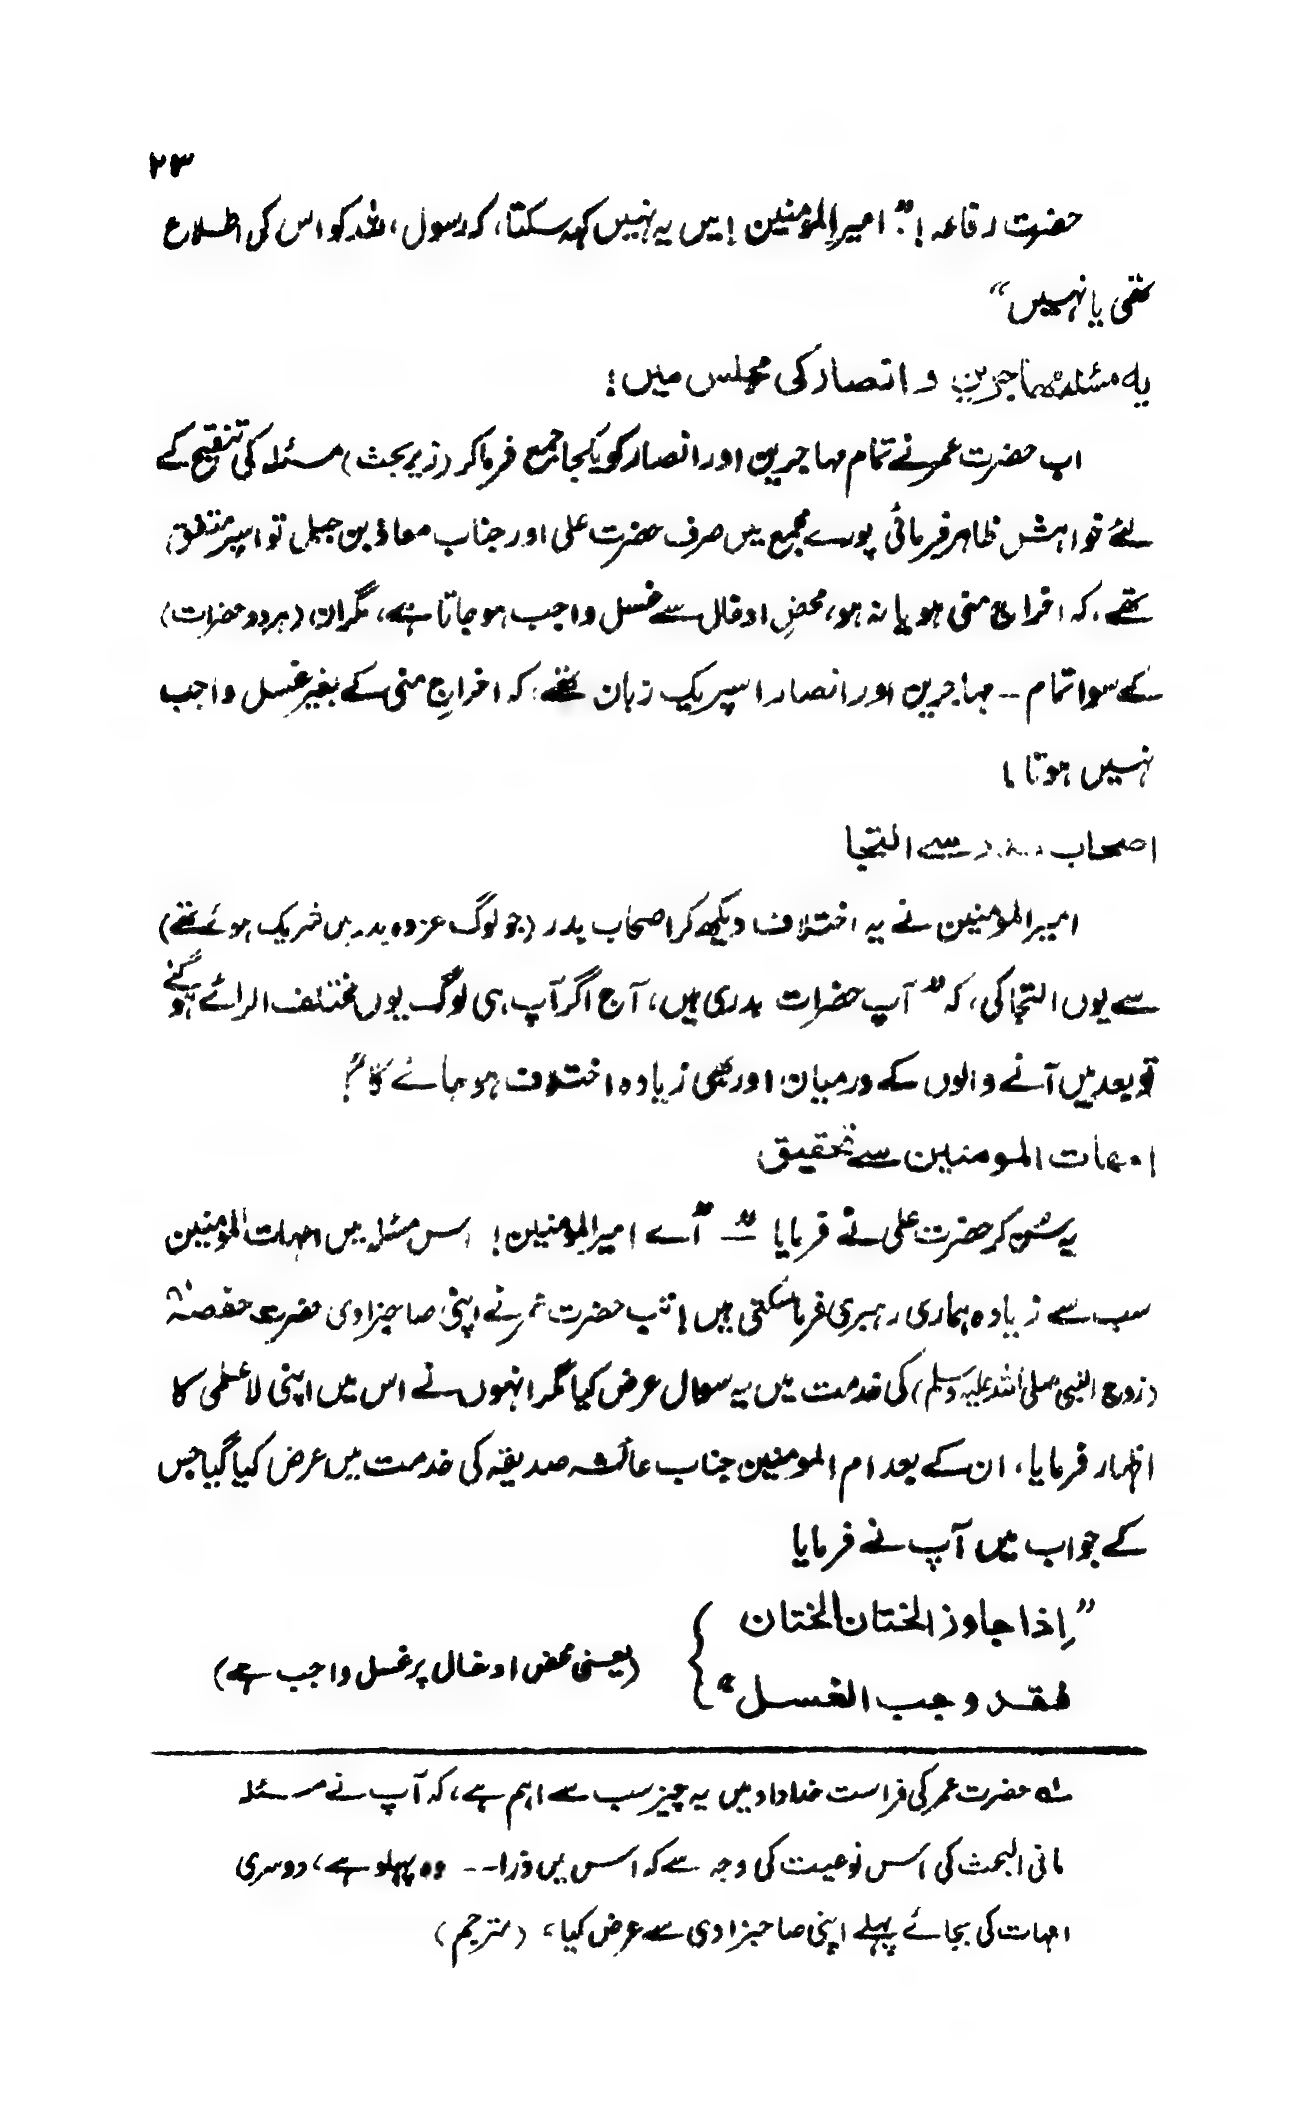 ۲۳
حضرت رفاعہ!" امیرالمؤمنین! میں یہ نہیں کہہ سکتا، کہ رسول اللہ کو اس کی اطلاع
تھی یا نہیں"
یہ مسئلہ مہاجرین و انصار کی مجلس میں!
اب حضرت عمر نے تمام مہاجرین اور انصار کو یکجا جمع فرما کر (زیر بحث) مسئلہ کی تنقیح کے
لئے خواہش ظاہر فرمائی پورے مجمع میں صرف حضرت علی اور جناب معاذ بن جبل تو اسپر متفق
تھے، کہ اخراج منی ہو یا نہ ہو، محض ادخال سے غسل واجب ہو جاتا ہے، مگر ان (ہر دو حضرات)
کے سوا تمام -- مہاجرین اور انصار اسپر یک زبان تھے، کہ اخراجِ منی کے بغیر غسل واجب
نہیں ہوتا۔
اصحاب بدر سے التجا
امیرالمؤمنین نے یہ اختلاف دیکھ کر اصحاب بدر (جو لوگ غزوہ بدر میں شریک ہوئے تھے)
سے یوں التجا کی، کہ "آپ حضرات بدری ہیں، آج اگر آپ ہی لوگ یوں مختلف الرائے ہو گئے
تو بعد میں آنے والوں کے درمیان اور بھی زیادہ اختلاف ہو جائے گا"؟
امہات المومنین سے تحقیق
یہ سُن کر حضرت علی نے فرمایا -- "اے امیرالمومنین! اس مسئلہ میں امہات المومنین
سب سے زیادہ ہماری رہبری فرما سکتی ہیں! تب حضرت عمر نے اپنی صاحبزادی حضرت حفصہ
(زوج النبی صلی اللہ علیہ وسلم) کی خدمت میں یہ سوال عرض کیا مگر انہوں نے اس میں اپنی لاعلمی کا
اظہار فرمایا، ان کے بعد ام المومنین جناب عائشہ صدیقہ کی خدمت میں عرض کیا گیا جس
کے جواب میں آپ نے فرمایا
"إذا جاوز الختان الختان
فقد وجب الغسل" (یعنی محض ادخال پر غسل واجب ہے)
حضرت عمر کی فراست خداداد میں یہ چیز سب سے اہم ہے، کہ آپ نے مسئلہ
مافی البحث کی اس نوعیت کی وجہ سے کہ اس میں ذرا -- وہ پہلو ہے، دوسری
امہات کی بجائے پہلے اپنی صاحبزادی سے عرض کیا، (مترجم)